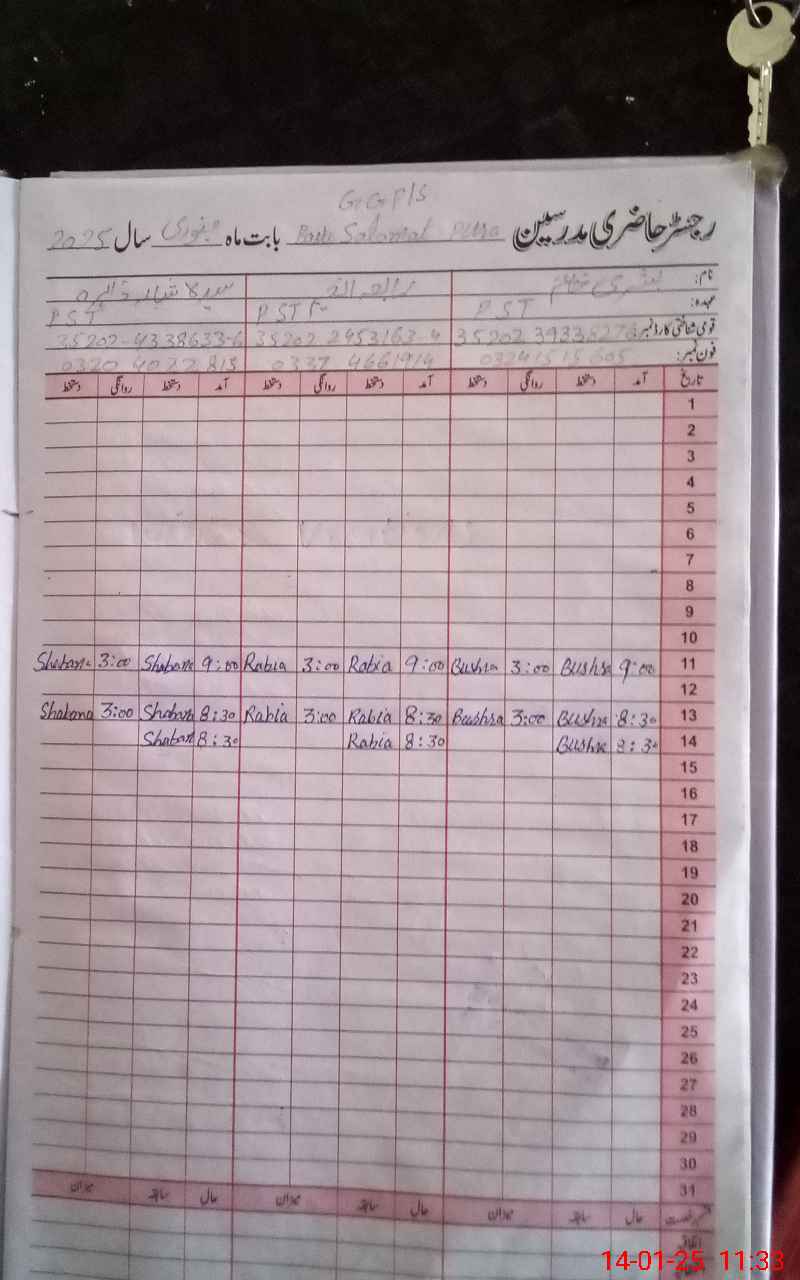 G.G.P/S
رجسٹر حاضری مدرسین Salamat Pura بابت ماہ جنوری سال 2025
نام:
عہدہ: PST PST PST
قومی شناختی کارڈ نمبر: 35202 2953163-4 35202-4338633-6
فون نمبر: 0337 4661914 0320 4022 813
تاریخ آمد دستخط روانگی دستخط آمد دستخط روانگی دستخط آمد دستخط روانگی دستخط
1
2
3
4
5
6
7
8
9
10
Shabana 3:00 Shabana 9:00 Rabia 3:00 Rabia 9:00 Bushra 3:00 Bushra 9:00 11
12
Shabana 3:00 Shabana 8:30 Rabia 3:00 Rabia 8:30 Bushra 3:00 Bushra 8:30 13
Shabana 8:30 Rabia 8:30 Bushra 8:30 14
15
16
17
18
19
20
21
22
23
24
25
26
27
28
29
30
31
حال سابقہ میزان حال سابقہ میزان حال سابقہ میزان
اتفاقی
14-01-25 11:33